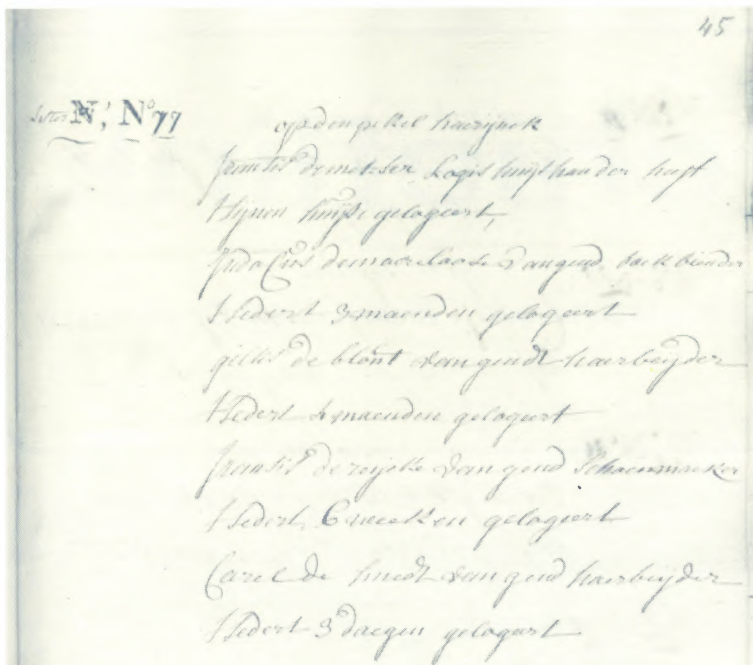 45
Letter N, No 77
op den pekel haerijnck
fransis demetser Logis huijs houder heeft
tsijnen huijse gelogeert,
judocus demaerelaere van gend boeck binder
tsedert 3 maenden gelogeert
gillis de blont van gendt haerbeyder
tsedert 4 maenden gelogeert
fransis de reijcke van gend schoenmaeker
tsedert 6 weeken gelogeert
Carel de smedt van gend haerbeyder
tsedert 3 daegen gelogeert